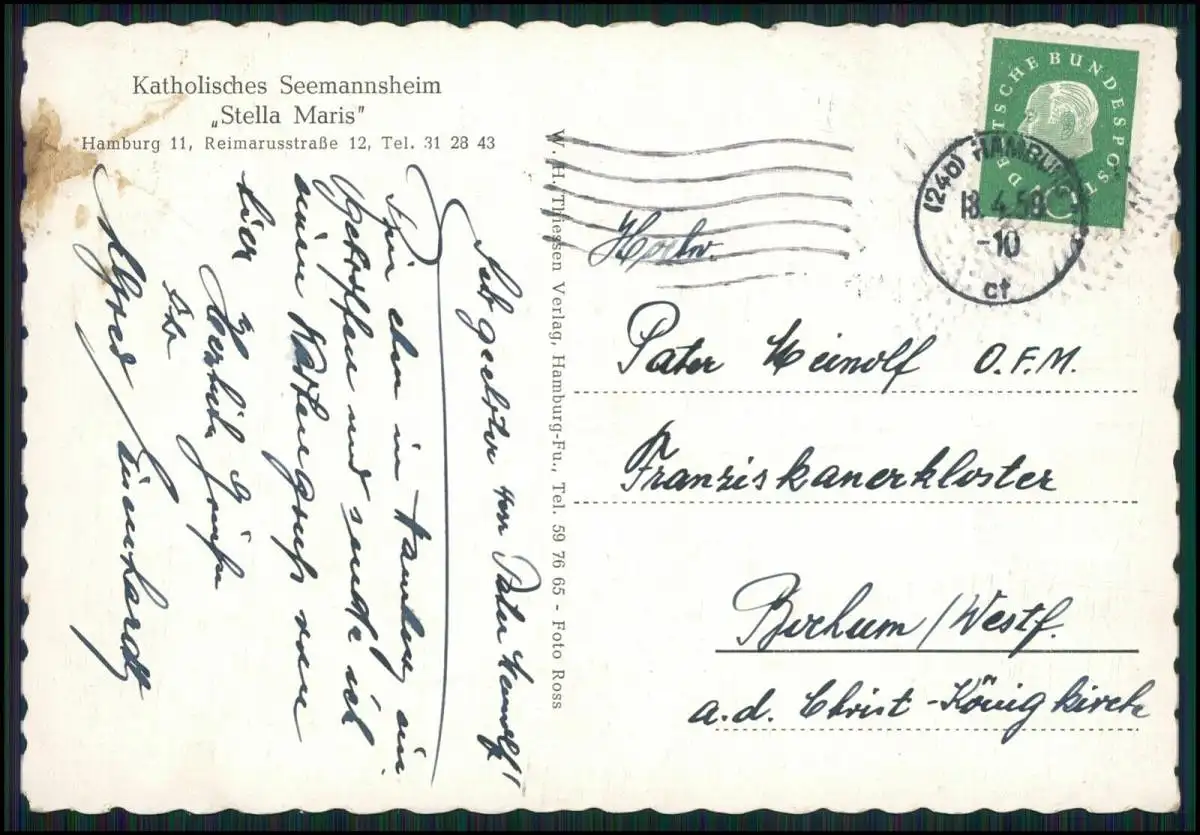 Katholisches Seemannsheim
„Stella Maris"
Hamburg 11, Reimarusstraße 12, Tel. 31 28 43
Pater Meinolf!
Bin eben in Hamburg ein
getroffen und sende ich
einen Kartengruß von
hier
Herzlich grüßen
Ihr
Alfred Lienhardt
W. H. Thiessen Verlag, Hamburg-Fu., Tel. 59 76 65 - Foto Ross
DEUTSCHE BUNDESPOST
10
(24a) HAMBURG
18.4.59
-10
ct
Pater Meinolf O.F.M.
Franziskanerkloster
Bochum/Westf.
a.d. Christ-Königkirche